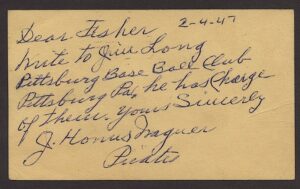 Dear Fisher 2-4-47
Write to Jim Long
Pittsburg Base Ball Club
Pittsburg Pa, he has Charge
of them. Yours Sincerly
J. Honus Wagner
Pirates